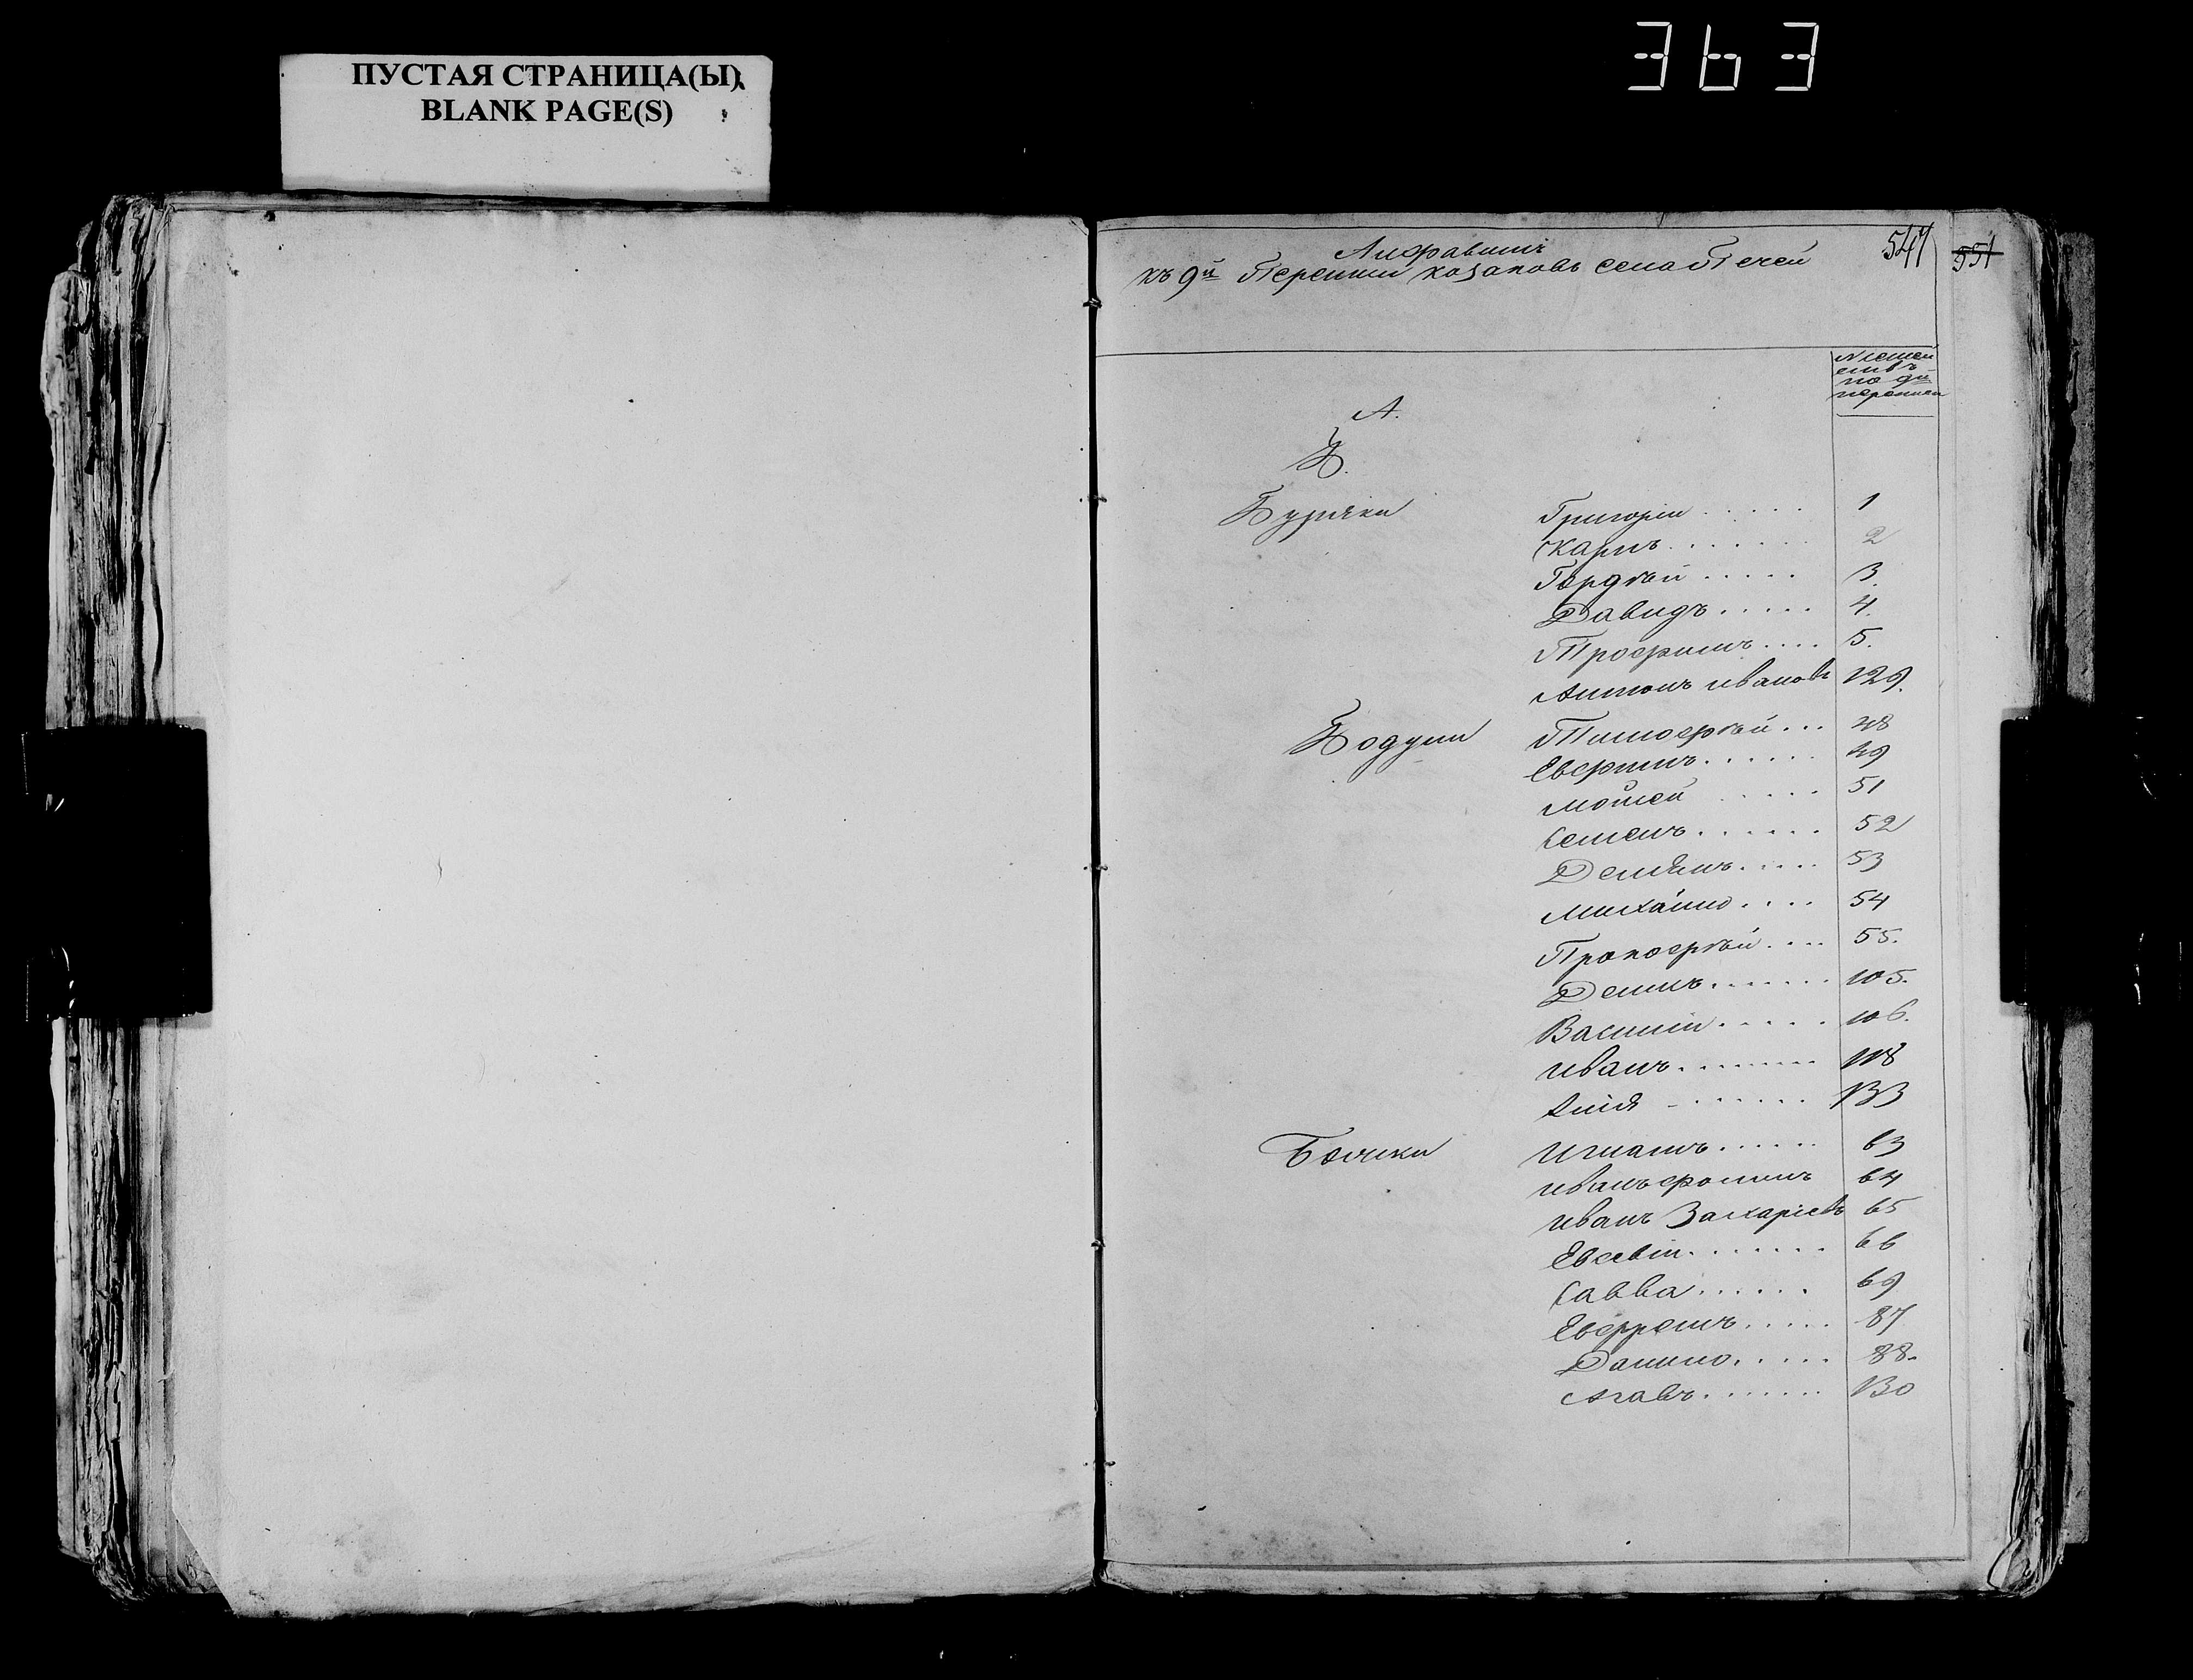 ПУСТАЯ СТРАНИЦА(Ы)
BLANK PAGE(S)
363
547
551
Алфавитъ
къ 9й Переписи козаковъ села Печей
№ семей
ствъ
по 9й
переписи
А.
Б.
Буряки
Григорій ..... 1
Карпъ ....... 2
Гордѣй ..... 3.
Давидъ ..... 4.
Трофимъ .... 5.
Антонъ Ивановъ 129.
Тимофѣй ... 48
Евфимъ ...... 49
Мойсей ..... 51
Семенъ ...... 52
Демянъ ..... 53
Михайло .... 54
Прокофѣй .... 55.
Демидъ ....... 105.
Василій ..... 106.
Иванъ ........ 118
Илія ...... 133
Игнатъ ...... 63
Иванъ Фоминъ 64
Иванъ Захаріевъ 65
Евсевій ....... 66
Савва ...... 69
Евфремъ ..... 87
Данило ..... 88.
....... 130